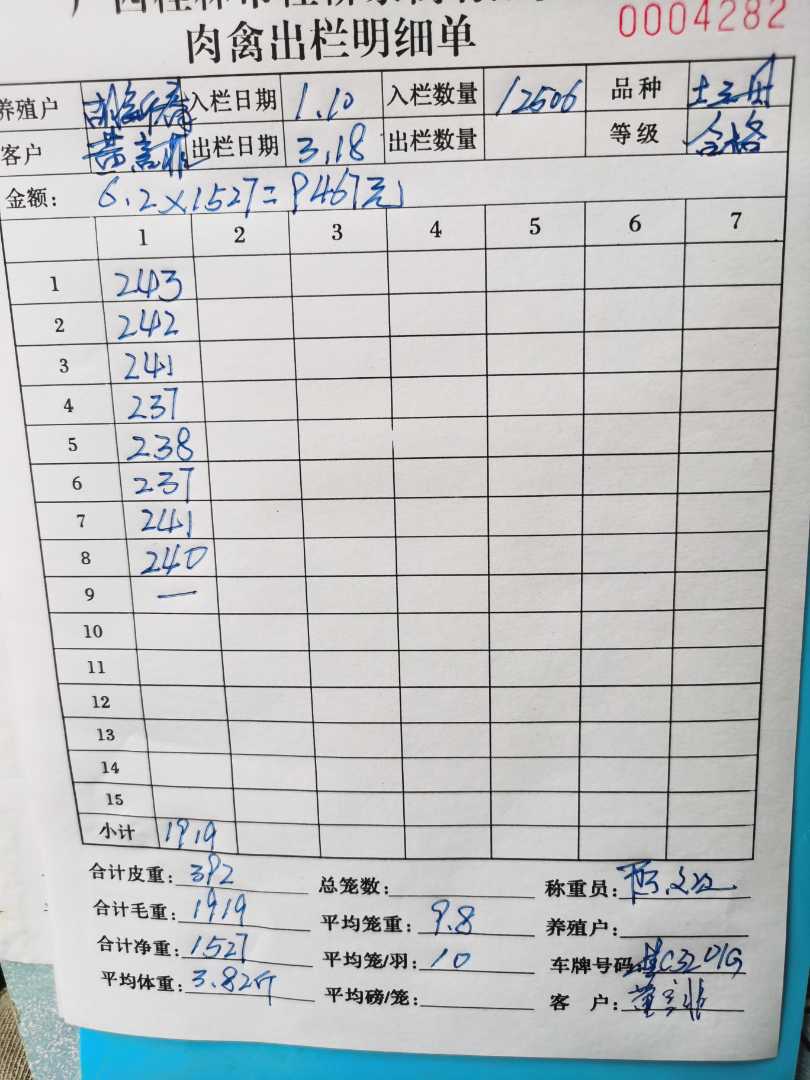 0004282
肉禽出栏明细单
养殖户 入栏日期 1.10 入栏数量 12506 品种
客户 出栏日期 3.18 出栏数量 等级 合格
金额: 6.2×1527=9467元
1 2 3 4 5 6 7
1 243
2 242
3 241
4 237
5 238
6 237
7 241
8 240
9 一
10
11
12
13
14
15
小计 1919
合计皮重: 392 总笼数: 称重员:
合计毛重: 1919 平均笼重: 9.8 养殖户:
合计净重: 1527 平均笼/羽: 10 车牌号码:
平均体重: 3.82斤 平均磅/笼: 客 户: